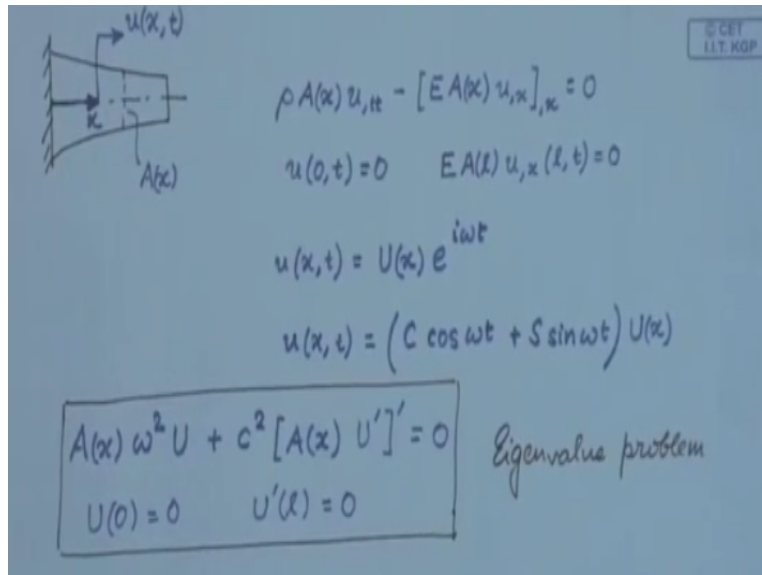 u(x,t)
© CET
I.I.T. KGP
x
A(x)
ρA(x) u,tt − [EA(x) u,x],x = 0
u(0,t) = 0 EA(l) u,x (l,t) = 0
u(x,t) = U(x) e^{iωt}
u(x,t) = (C cos ωt + S sin ωt) U(x)
A(x) ω² U + c² [A(x) U′]′ = 0
U(0) = 0 U′(l) = 0
Eigenvalue problem